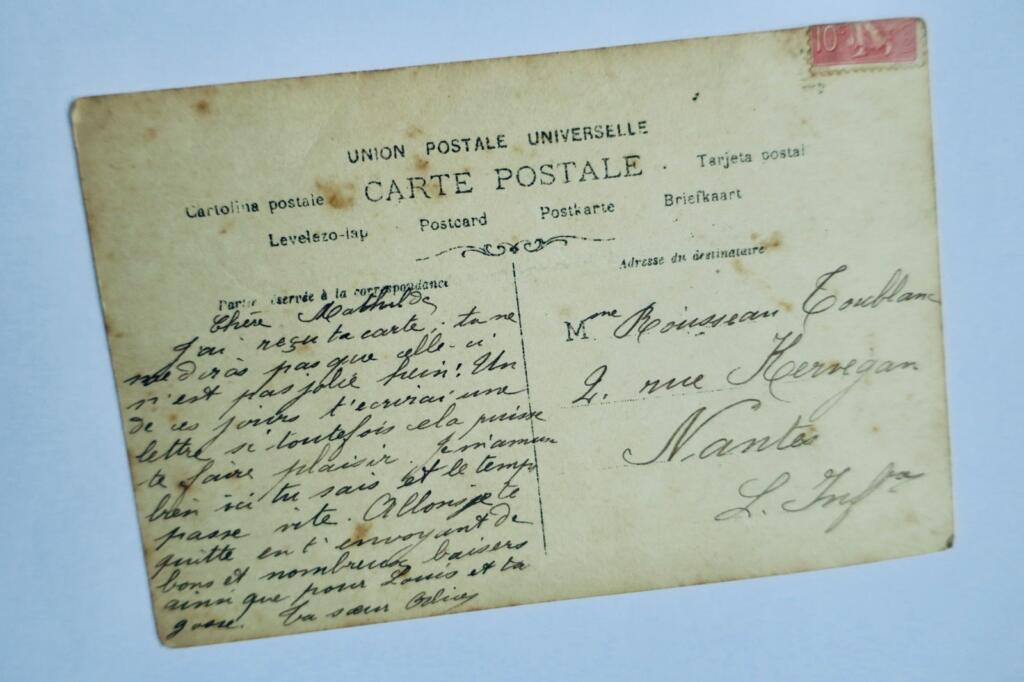 10c
UNION POSTALE UNIVERSELLE
CARTE POSTALE
Cartolina postale
Tarjeta postal
Levelezo-lap
Postcard
Postkarte
Briefkaart
Partie réservée à la correspondance
Adresse du destinataire
Chère Mathilde
J'ai reçu ta carte, tu ne
me diras pas que celle-ci
n'est pas jolie hein! Un
de ces jours t'ecrirai une
lettre si toutefois cela puisse
te faire plaisir. Je m'amuse
bien ici tu sais et le temps
passe vite. Allons je te
quitte en t'envoyant de
bons et nombreux baisers
ainsi que pour Louis et ta
gosse. Ta sœur
Mme Rousseau Toublanc
2. rue Kervegan
Nantes
L. Infre